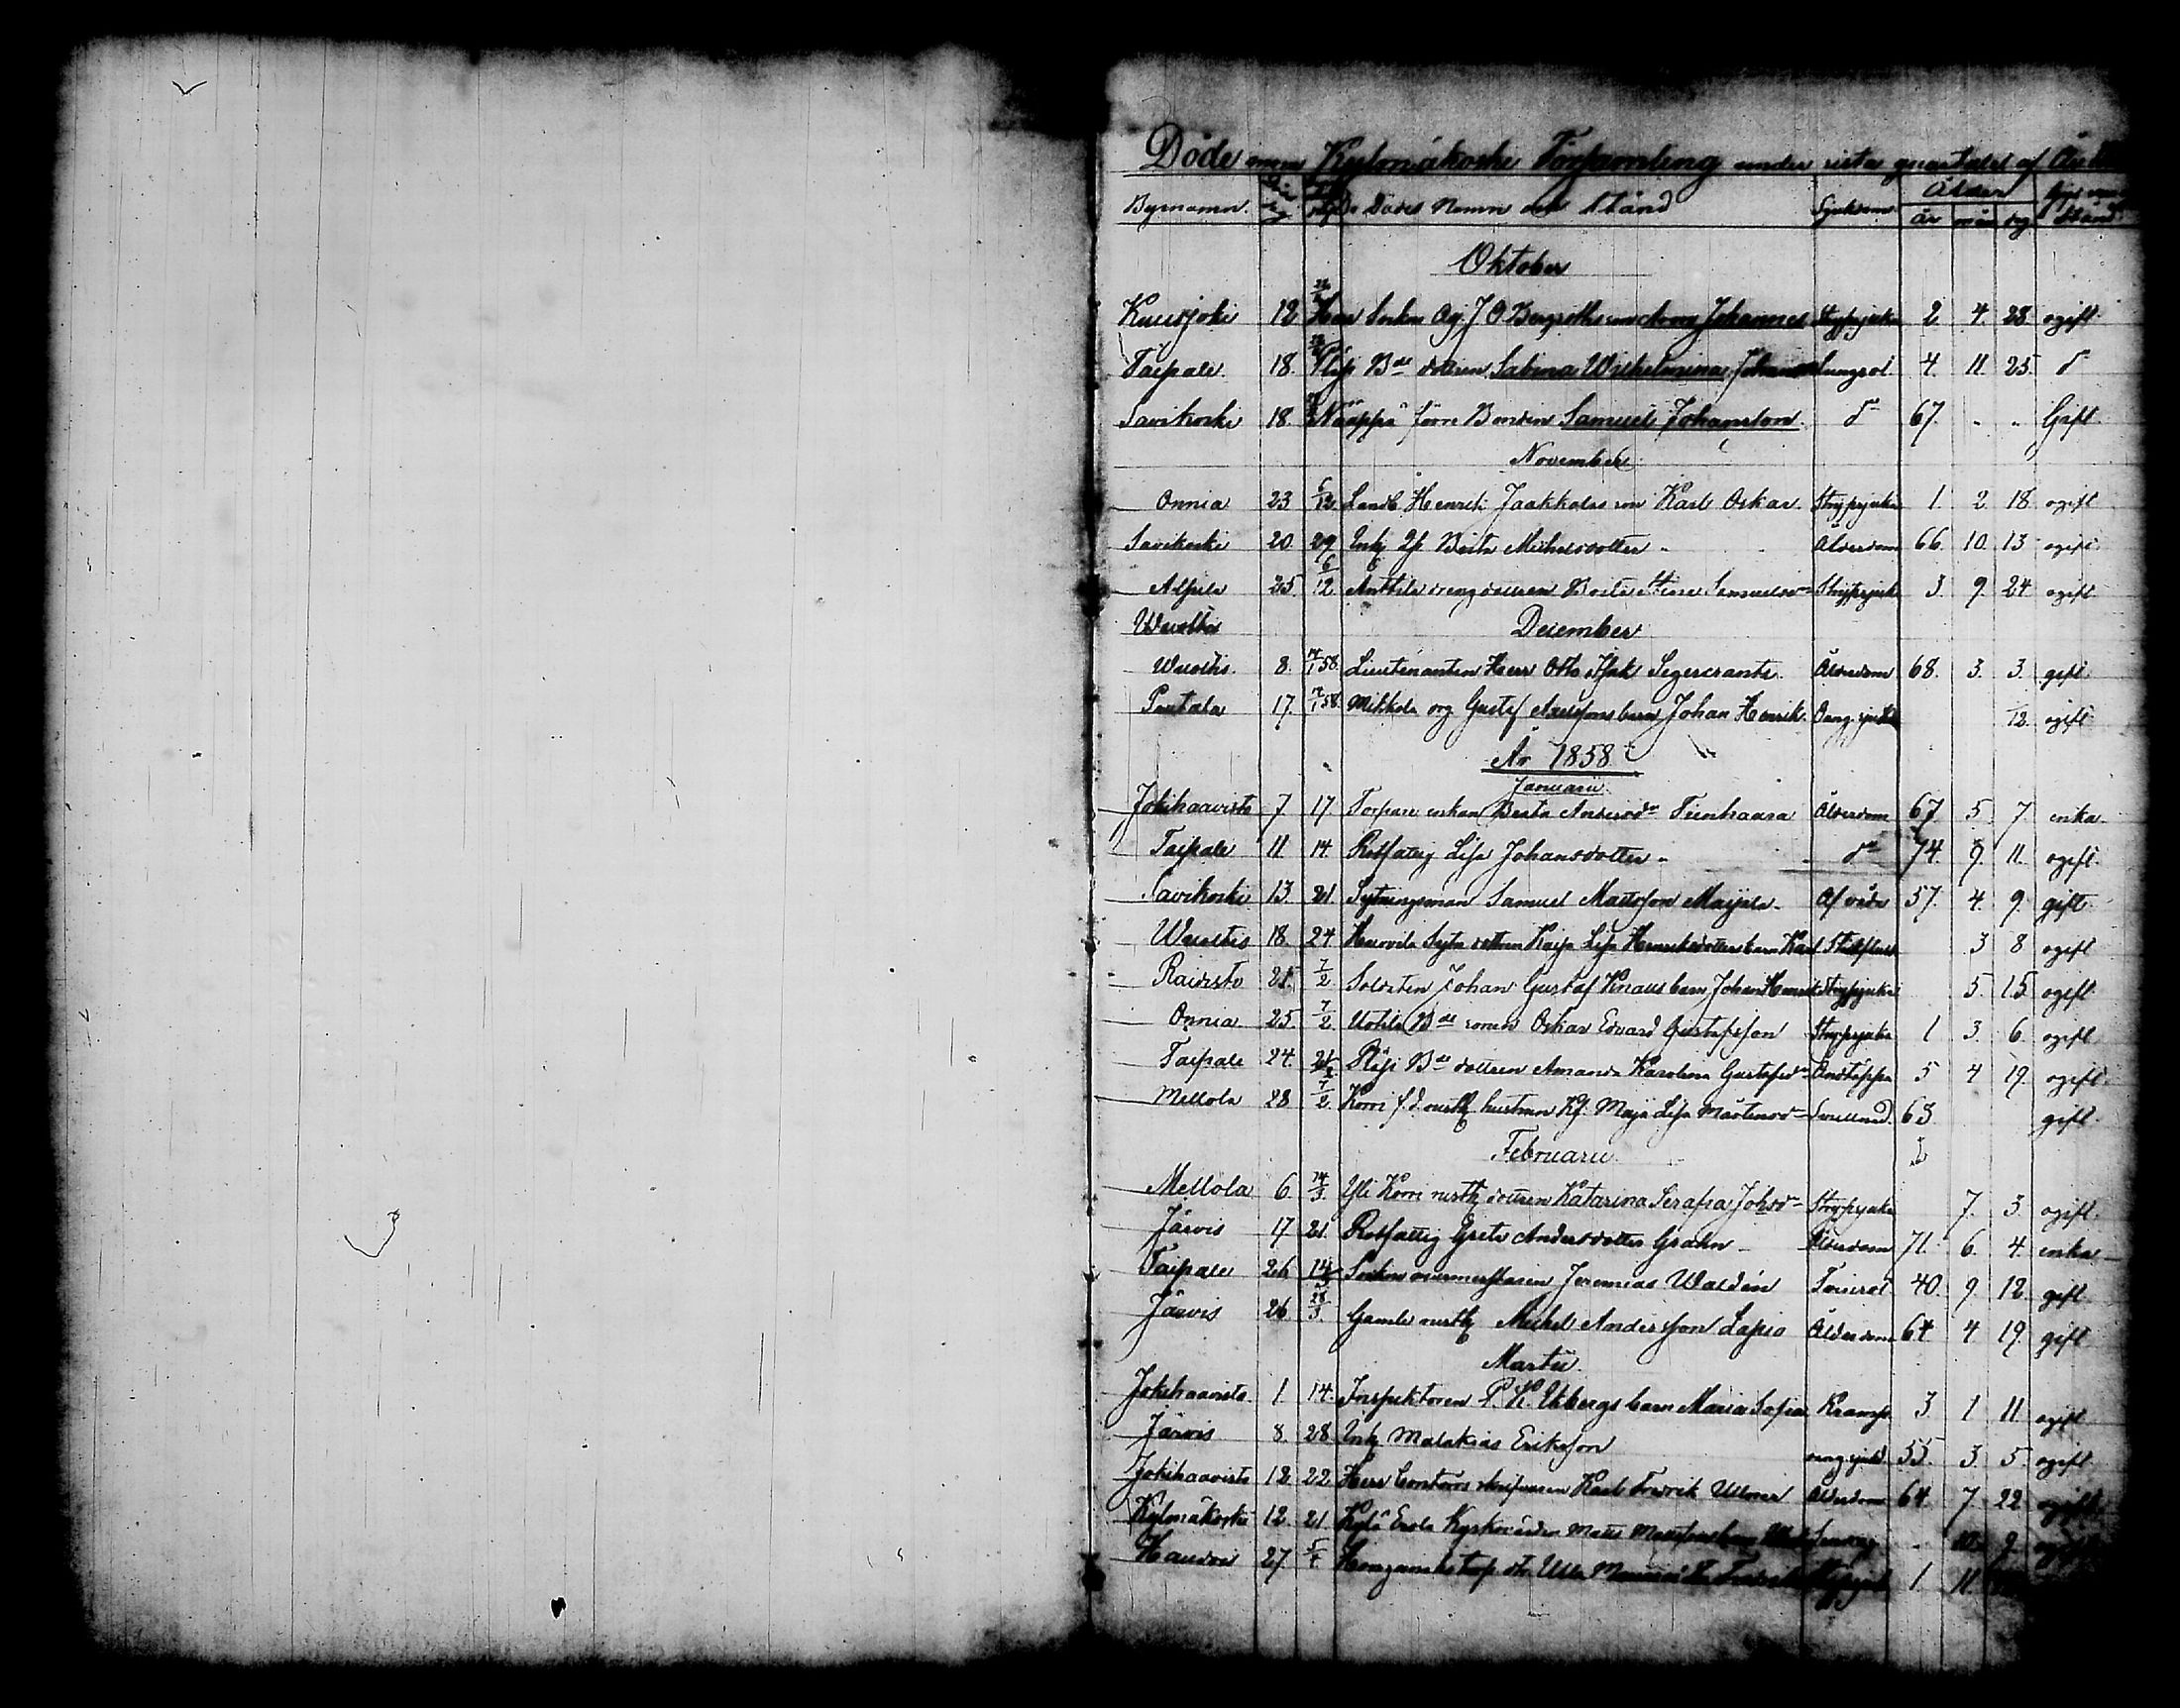 Döde inom Kylmäkoski Församling under sista quartalet af År
Bynamn. De Dödes Namn och Stånd Sjukdom Ålder år mån dag Stånd
Oktober
Kuusjoki 12 Herr Sockne Adj. J O Bergroths son Arvo Johannes Strypsjuka 2 4. 28 ogift
Taipale 18. B de dottren Sabina Wilhelmina Johansd Lungsot. 4. 11. 25. d o
Savikoski 18. Nääppä förre Bonden Samuel Johansson d o 67. " " Gift.
November
Onnia 23 6/12 Landb. Henrik Jaakkolas son Karl Oskar. Strypsjuka 1. 2. 18. ogift
Savikoski 20. 29 Inh. Beata Michelsdotter Ålderdom 66. 10. 13 ogift
Alpila 25 6/12 Anttila drengdottren Beata Stina Samuelsd Strypsjuka 3. 9. 24 ogift
December
8. 1/58. Lieutenanten Herr Otto Isak Segercrantz. Ålderdom 68. 3. 3. gift.
Pentala 17. 1/58. Mikkola drg Gustaf Axelssons barn Johan Henrik. Oang. sjukd 12. ogift
År 1858
Januarii
Jokihaavisto 7. 17. Torpare enkan Beata Andersd r Tiinhaara Ålderdom 67. 5. 7 enka
Taipale 11 14. Rotfattig Lisa Johansdotter d o 74. 9 11. ogift.
Savikoski 13. 21. Sytningsman Samuel Mattsson Maijala Af våda 57. 4. 9. gift
18. 24 Huovila Sytn. dottren Kaija Lisa Henriksdotters barn Karl 3 8 ogift
Raivisto 21. 7/2 Soldaten Johan Gustaf Knaus barn Johan Henrik Strypsjuka 5. 15. ogift
Onnia 25. 7/2. Uotila B de sonen Oskar Edvard Gustafsson Strypsjuka 1 3. 6. ogift
Taipale 24. B de dottren Amanda Karolina Gustafsd r Andtäppa 5 4 19. ogift.
Mellola 28 7/2. Korri f.d. rusth. hustrun Maja Lisa Mårtensd r Svullnad. 63 gift.
Februarii
Mellola 6. 14/3. Yli Korri rusth. dottren Katarina Serafia Johsd r Strypsjuka 7. 3. ogift.
Järvis 17 21. Rotfattig Greta Andersdotter Grahn Ålderdom 71. 6. 4. enka
Taipale 26 14 Sockneskomakaren Jeremias Waldén Tvinsot 40. 9. 12. gift.
Järvis 26 28/3. Gamle rusth. Michel Andersson Lapio Ålderdom 64 4 19. gift
Martii.
Jokihaavisto. 1. 14. Inspektoren P. K. Ekbergs barn Maria Sofia Kramp. 3. 1 11 ogift
Järvis 8. 28 Inh. Malakias Eriksson oang. sjukd. 55. 3. 5 ogift
Jokihaavisto 12. 22 Herr Contors Karl Fredrik Ålderdom 64. 7 22 ogift
Kylmäkoski 12. 21. Kylä Erola Matts Mattssons barn 9. ogift
27. 5/4 1. 11.